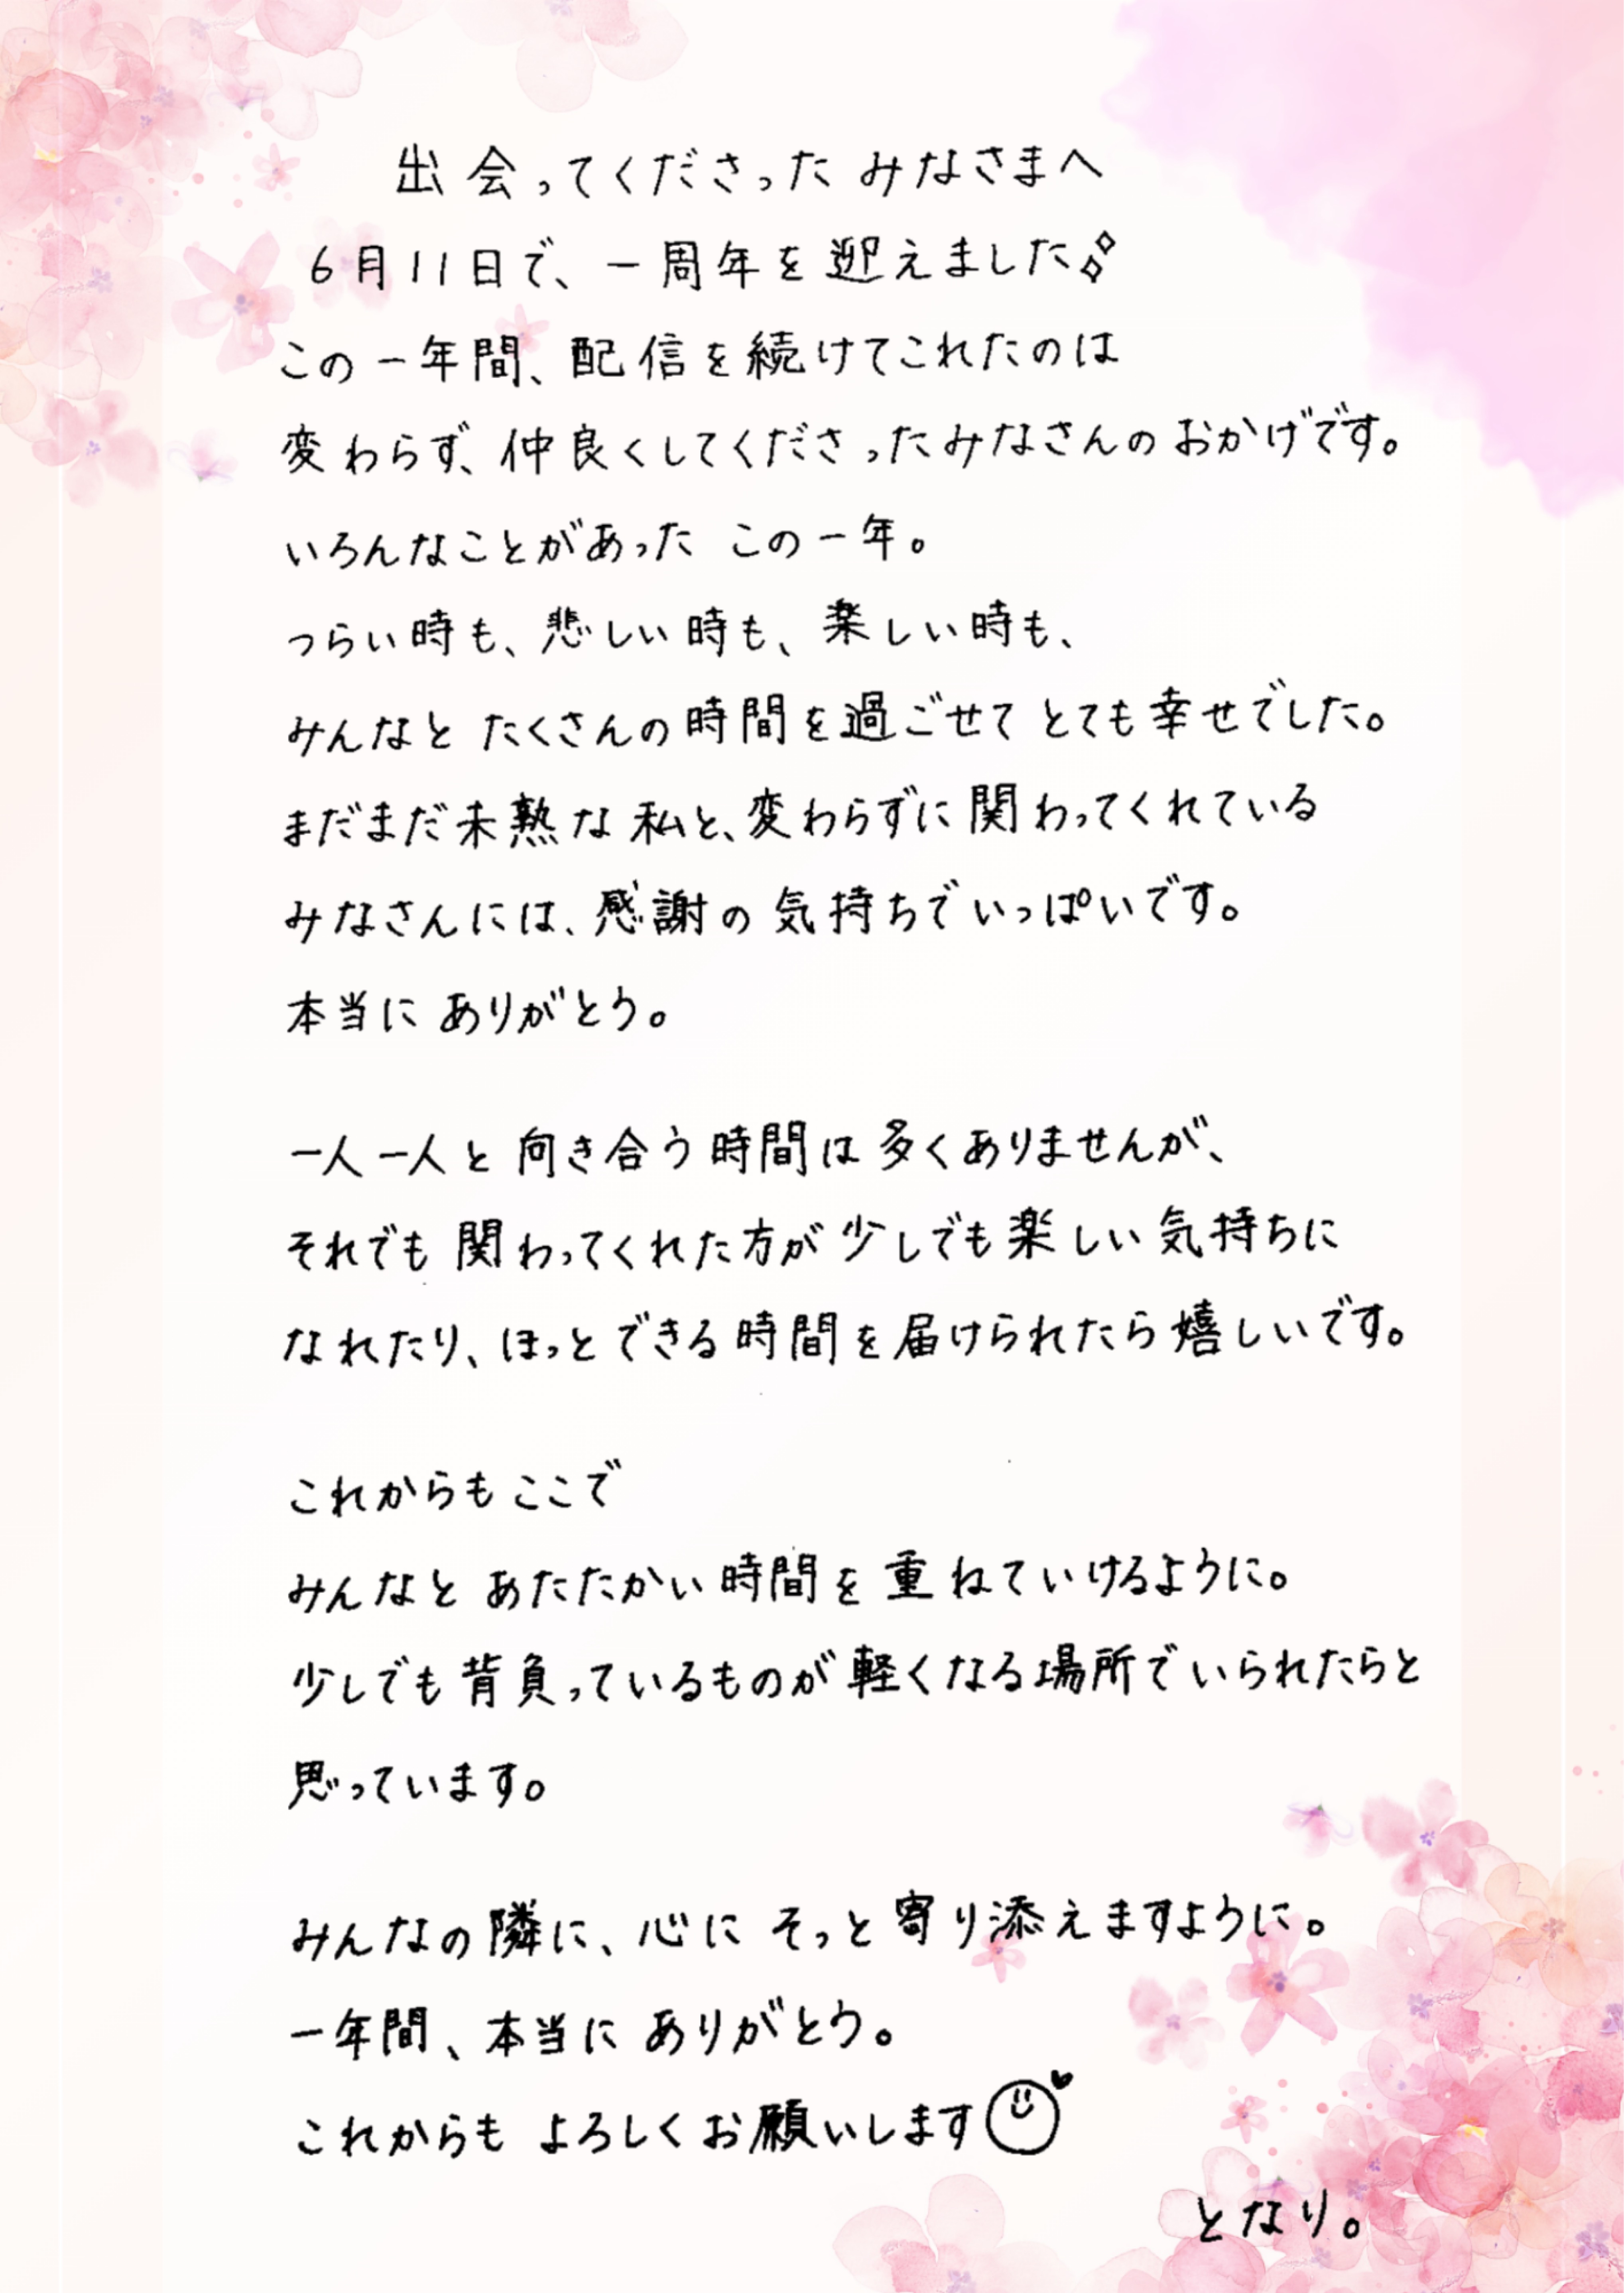 出会ってくださった みなさまへ
6月11日で、一周年を迎えました
この一年間、配信を続けてこれたのは
変わらず、仲良くしてくださったみなさんのおかげです。
いろんなことがあった この一年。
つらい時も、悲しい時も、楽しい時も、
みんなと たくさんの時間を過ごせて とても幸せでした。
まだまだ未熟な私と、変わらずに関わってくれている
みなさんには、感謝の気持ちでいっぱいです。
本当に ありがとう。
一人一人と向き合う時間は多くありませんが、
それでも関わってくれた方が少しでも楽しい気持ちに
なれたり、ほっとできる時間を届けられたら嬉しいです。
これからもここで
みんなと あたたかい時間を重ねていけるように。
少しでも背負っているものが軽くなる場所でいられたらと
思っています。
みんなの隣に、心に そっと寄り添えますように。
一年間、本当に ありがとう。
これからも よろしくお願いします
となり。